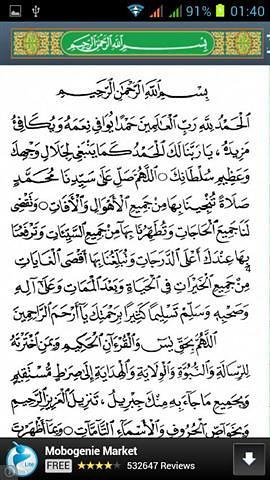 01:40
بِسْمِ اللهِ الرَّحْمٰنِ الرَّحِيْمِ
بِسْمِ اللهِ الرَّحْمٰنِ الرَّحِيْمِ
اَلْحَمْدُ لِلّٰهِ رَبِّ الْعَالَمِيْنَ حَمْدًا يُوَافِيْ نِعَمَهُ وَيُكَافِئُ
مَزِيْدَهُ ، يَا رَبَّنَا لَكَ الْحَمْدُ كَمَا يَنْبَغِيْ لِجَلَالِ وَجْهِكَ
وَعَظِيْمِ سُلْطَانِكَ ۞ اَللّٰهُمَّ صَلِّ عَلٰى سَيِّدِنَا مُحَمَّدٍ
صَلَاةً تُنْجِيْنَا بِهَا مِنْ جَمِيْعِ الْاَهْوَالِ وَالْاٰفَاتِ ۞ وَتَقْضِيْ
لَنَا جَمِيْعَ الْحَاجَاتِ وَتُطَهِّرُنَا بِهَا مِنْ جَمِيْعِ السَّيِّئَاتِ وَتَرْفَعُنَا
بِهَا عِنْدَكَ اَعْلَى الدَّرَجَاتِ وَتُبَلِّغُنَا بِهَا اَقْصَى الْغَايَاتِ
مِنْ جَمِيْعِ الْخَيْرَاتِ فِي الْحَيَاةِ وَبَعْدَ الْمَمَاتِ وَعَلٰى اٰلِهِ
وَصَحْبِهِ وَسَلِّمْ تَسْلِيْمًا كَثِيْرًا بِرَحْمَتِكَ يَا اَرْحَمَ الرَّاحِمِيْنَ
اَللّٰهُمَّ بِحَقِّ يٰسٓ وَالْقُرْءَانِ الْحَكِيْمِ وَبِمَنِ اخْتَرْتَهُ
لِلرِّسَالَةِ وَالنُّبُوَّةِ وَالْوِلَايَةِ وَالْهِدَايَةِ اِلٰى صِرَاطٍ مُسْتَقِيْمٍ
وَبِجَمِيْعِ مَا جَاءَ بِهِ مِنْكَ جِبْرِيْلُ ، تَنْزِيْلَ الْعَزِيْزِ الرَّحِيْمِ
وَبِخَوَاصِّ الْحُرُوْفِ وَالْاَسْمَاءِ التَّامَّاتِ ۞ وَبِمَا اَظْهَرْتَ
Mobogenie Market
FREE 532647 Reviews
Lite